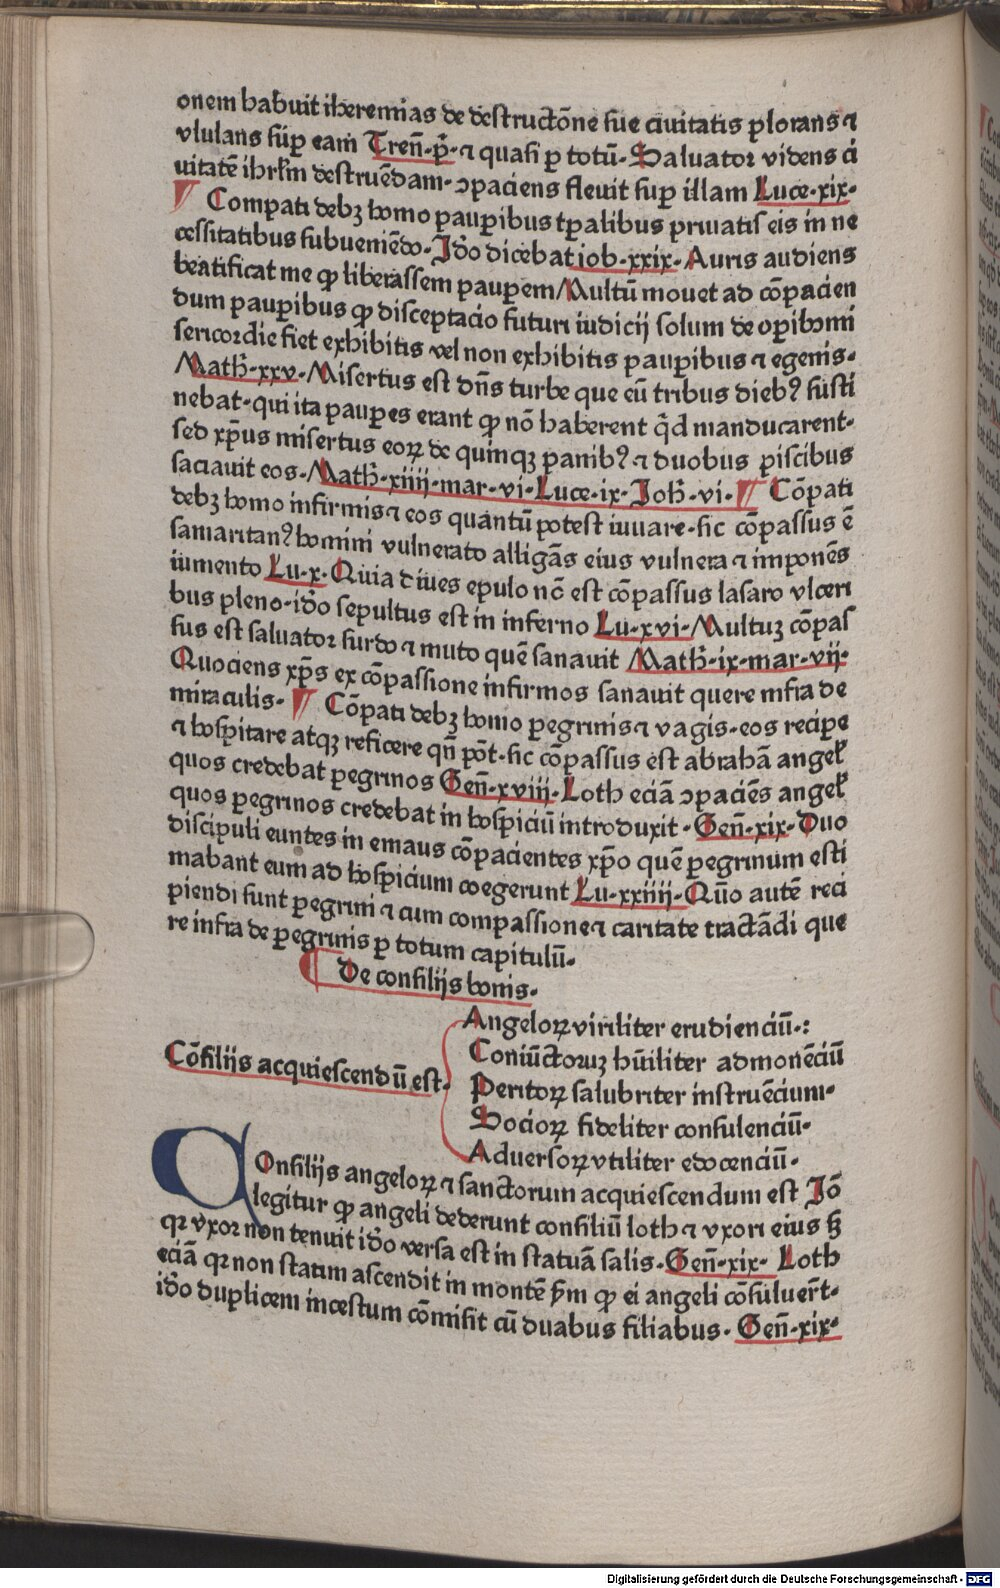 onem habuit iheremias de destructōne sue ciuitatis ꝑlorans ⁊
vlulans suꝑ eam Tren̄·p̄·⁊ quasi ꝑ totū· Saluator videns ci
uitatē ihrlm̄ destruēdam· ↄpaciens fleuit suꝑ illam Luce·xix·
¶ Compati debꝫ homo pauꝑibus tꝑalibus priuatis eis in ne
cessitatibus subueniēdo· Jdo̅ dicebat iob·xxix· Auris audiens
beatificat me ꝙ liberassem pauꝑem/ Multū mouet ad cōpacien
dum pauꝑibus ꝙ disceptacio futuri iudicij solum de oꝑibꝰ mi
sericordie fiet exhibitis vel non exhibitis pauꝑibus ⁊ egenis·
Math̄·xxv· Misertus est dn̄s turbe que eū tribus diebꝰ susti
nebat· qui ita pauꝑes erant ꝙ nō haberent q̄d manducarent·
sed xp̄us misertus eoꝝ de quinqꝫ panibꝰ ⁊ duobus piscibus
saciauit eos· Math̄·xiiij·mar·vi·Luce·ix·Joh̄·vi· ¶ Cōpati
debꝫ homo infirmis ⁊ eos quantū potest iuuare· sic cōpassus ē
samaritanꝰ homini vulnerato alligās eius vulnera ⁊ imponēs
iumento Lu·x· Quia diues epulo nō est cōpassus lasaro vlceri
bus pleno· ido̅ sepultus est in inferno Lu·xvi· Multuꝫ cōpas
sus est saluator surdo ⁊ muto quē sanauit Math̄·ix·mar·vij·
Quociens xp̄s ex cōpassione infirmos sanauit quere infra de
miraculis· ¶ Cōpati debꝫ homo ꝑegrinis ⁊ vagis· eos reciꝑe
⁊ hospitare atqꝫ reficere qn̄ pōt· sic cōpassus est abrahā angel̄
quos credebat ꝑegrinos Gen̄·xviij· Loth eciā ↄpaciēs angel̄
quos ꝑegrinos credebat in hospiciū introduxit· Gen̄·xix· Duo
discipuli euntes in emaus cōpacientes xp̄o quē ꝑegrinum esti
mabant eum ad hospicium coegerunt Lu·xxiiij· Quo̅ autē reci
piendi sunt ꝑegrini ⁊ cum compassione ⁊ caritate tractādi que
re infra de ꝑegrinis ꝑ totum capitulū·
¶ De consilijs bonis·
Angeloꝝ viriliter erudienciū·:
Coniūctoruꝫ hūiliter admonēciū
Cōsilijs acquiescendū est· Peritoꝝ salubriter instruēcium·
Socioꝝ fideliter consulenciū·
Aduersoꝝ vtiliter edocenciū·
COnsilijs angeloꝝ ⁊ sanctorum acquiescendum est Jo̅
legitur ꝙ angeli dederunt consiliū loth ⁊ vxori eius sꝫ
qꝛ vxor non tenuit ido̅ versa est in statuā salis· Gen̄·xix· Loth
eciā qꝛ non statim ascendit in montē s̄m ꝙ ei angeli cōsuluer̄t·
ido̅ duplicem incestum cōmisit cū duabus filiabus· Gen̄·xix·
Digitalisierung gefördert durch die Deutsche Forschungsgemeinschaft - DFG